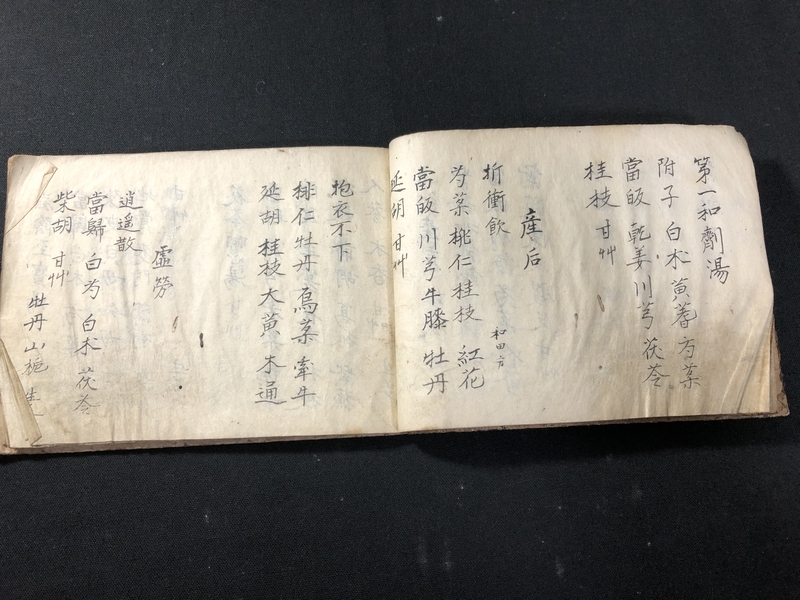 第一和劑湯
附子 白朮 黄蓍 芍薬
當皈 乾姜 川芎 茯苓
桂枝 甘艸
産后
折衝飲 和田方
芍薬 桃仁 桂枝 紅花
當皈 川芎 牛膝 牡丹
延胡 甘艸
抱衣不下
桃仁 牡丹 烏薬 牽牛
延胡 桂枝 大黄 木通
虚勞
逍遥散
當歸 白芍 白朮 茯苓
柴胡 甘艸
牡丹 山梔